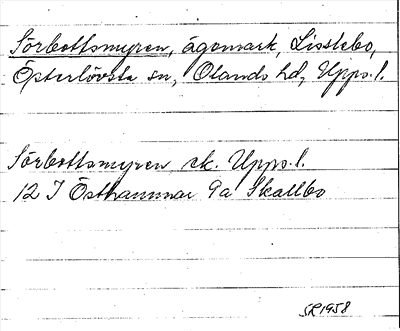 Sörbottsmyren, ägomark, Lisslebo,
Österlövsta sn, Olands hd, Upps. l.
Sörbottsmyren, ek. Upps. l.
12 I Östhammar 9a Skallbo
SR 1958